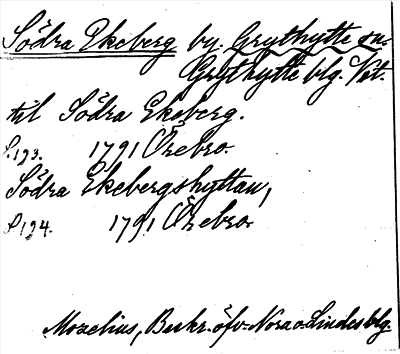 Södra Ekeberg by. Grythytte sn.
Grythytte blg. Vstl.
til Södra Ekeberg.
S.193. 1791 Örebro.
Södra Ekebergshyttan,
S.194. 1791 Örebro
Mozelius, Beskr. öfv. Nora o. Lindes blg.